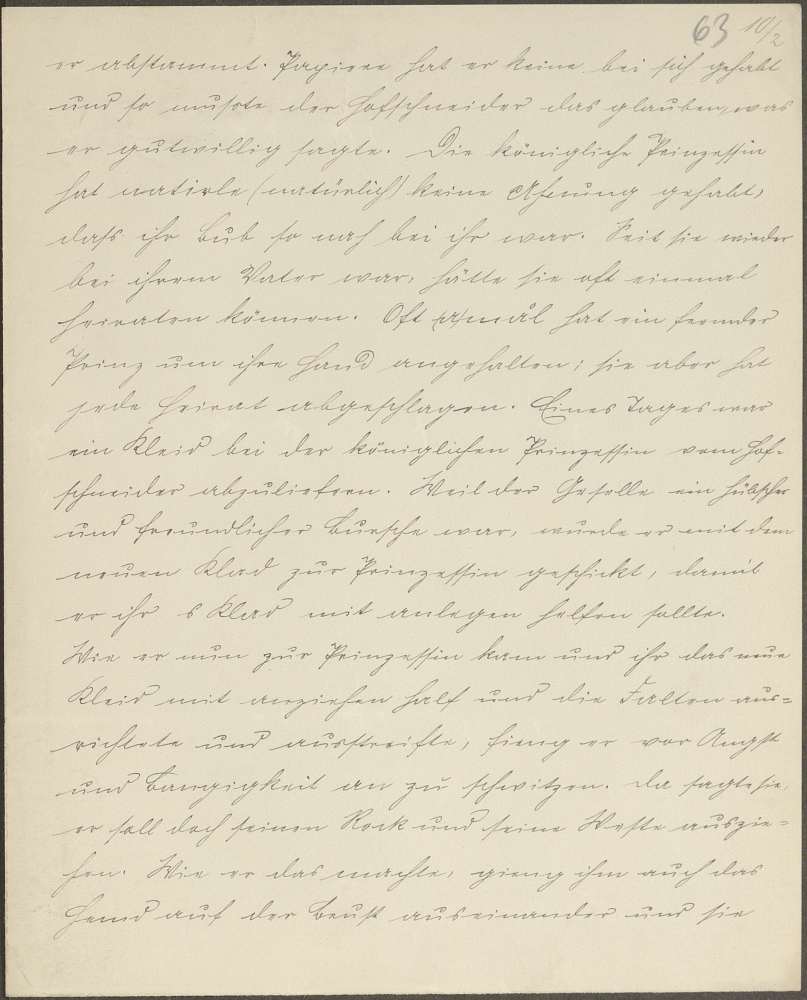 63 10/2
er abstammt. Papiere hat er keine bei sich gehabt
und so musste der Hofschneider das glauben, was
er gutwillig sagte. Die königliche Prinzessin
hat natirle (natürlich) keine Ahnung gehabt,
daß ihr Bub so nah bei ihr war. Seit sie wieder
bei ihrem Vater war, hätte sie oft einmal
heiraten können. Oft (a)mål hat ein fremder
Prinz um ihre Hand angehalten; sie aber hat
jede Heirat abgeschlagen. Eines Tages war
ein Kleid bei der königlichen Prinzessin vom Hof-
schneider abzuliefern. Weil der Geselle ein hübscher
und freundlicher Bursche war, wurde er mit dem
neuen Klad zur Prinzessin geschickt, damit
er ihr s Klad mit anlegen helfen sollte.
Wie er nun zur Prinzessin kam und ihr das neue
Kleid mit anziehen half und die Falten aus=
richtete und ausstreifte, fieng er vor Angst
und Bangigkeit an zu schwitzen. Da sagte sie,
er soll doch seinen Rock und seine Weste auszie=
hen. Wie er das machte, gieng ihm auch das
Hemd auf der Brust auseinander und sie